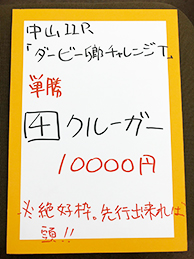 中山11R
「ダービー卿チャレンジT」
単勝
4 クルーガー
10000円
※絶好枠。先行出来れば
頭!!